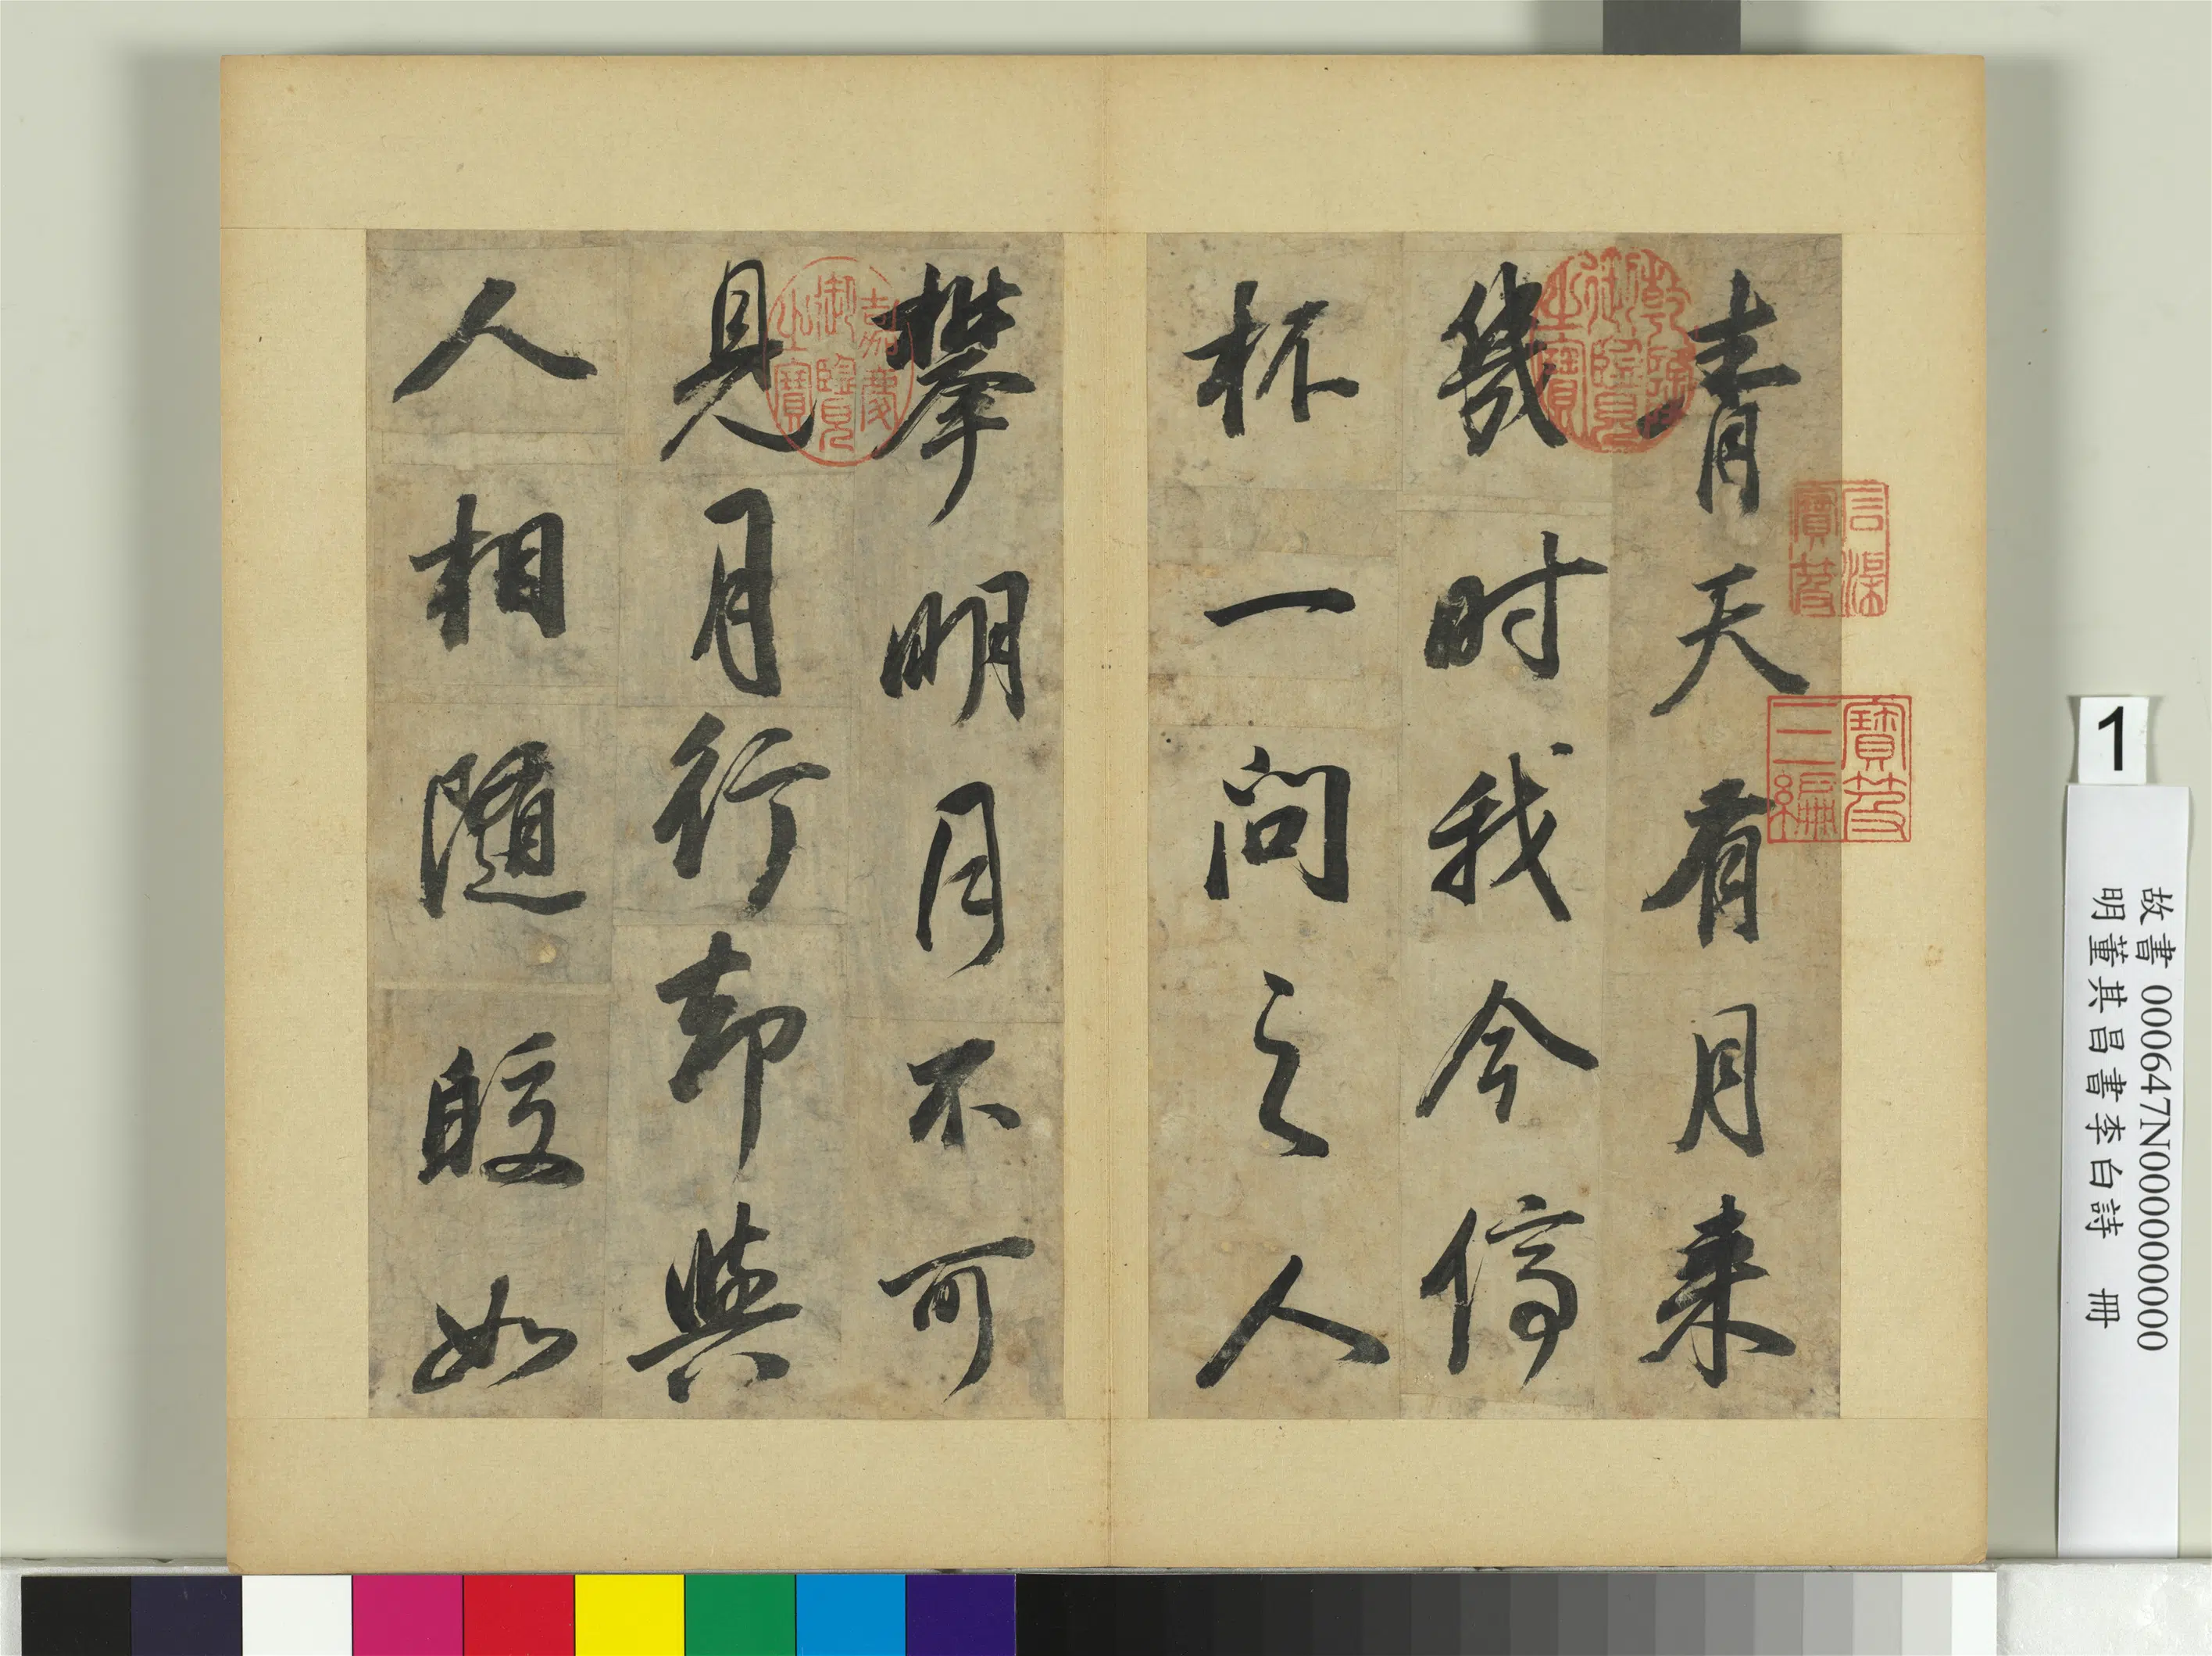 青天有月来
幾时我今停
杯一问之人
攀明月不可
見月行却與
人相隨皎如
乾隆御覽之寶
嘉慶御覽之寶
石渠寶笈
寶笈三編
1
故書 000647N000000000
明董其昌書李白詩 冊